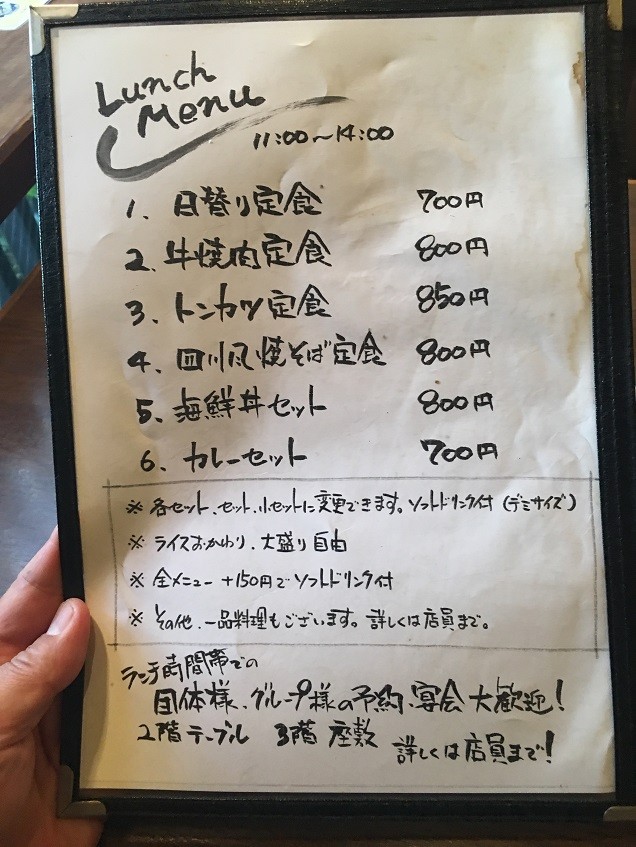 Lunch
Menu
11:00～14:00
1、日替り定食 700円
2、牛焼肉定食 800円
3、トンカツ定食 850円
4、四川風焼そば定食 800円
5、海鮮丼セット 800円
6、カレーセット 700円
※ 各セット、セット、小セットに変更できます。ソフトドリンク付（デミサイズ）
※ ライスおかわり、大盛り自由
※ 全メニュー +150円でソフトドリンク付
※ その他、一品料理もございます。詳しくは店員まで。
ランチ時間帯での
団体様、グループ様の予約、宴会大歓迎！
2階テーブル 3階 座敷 詳しくは店員まで！